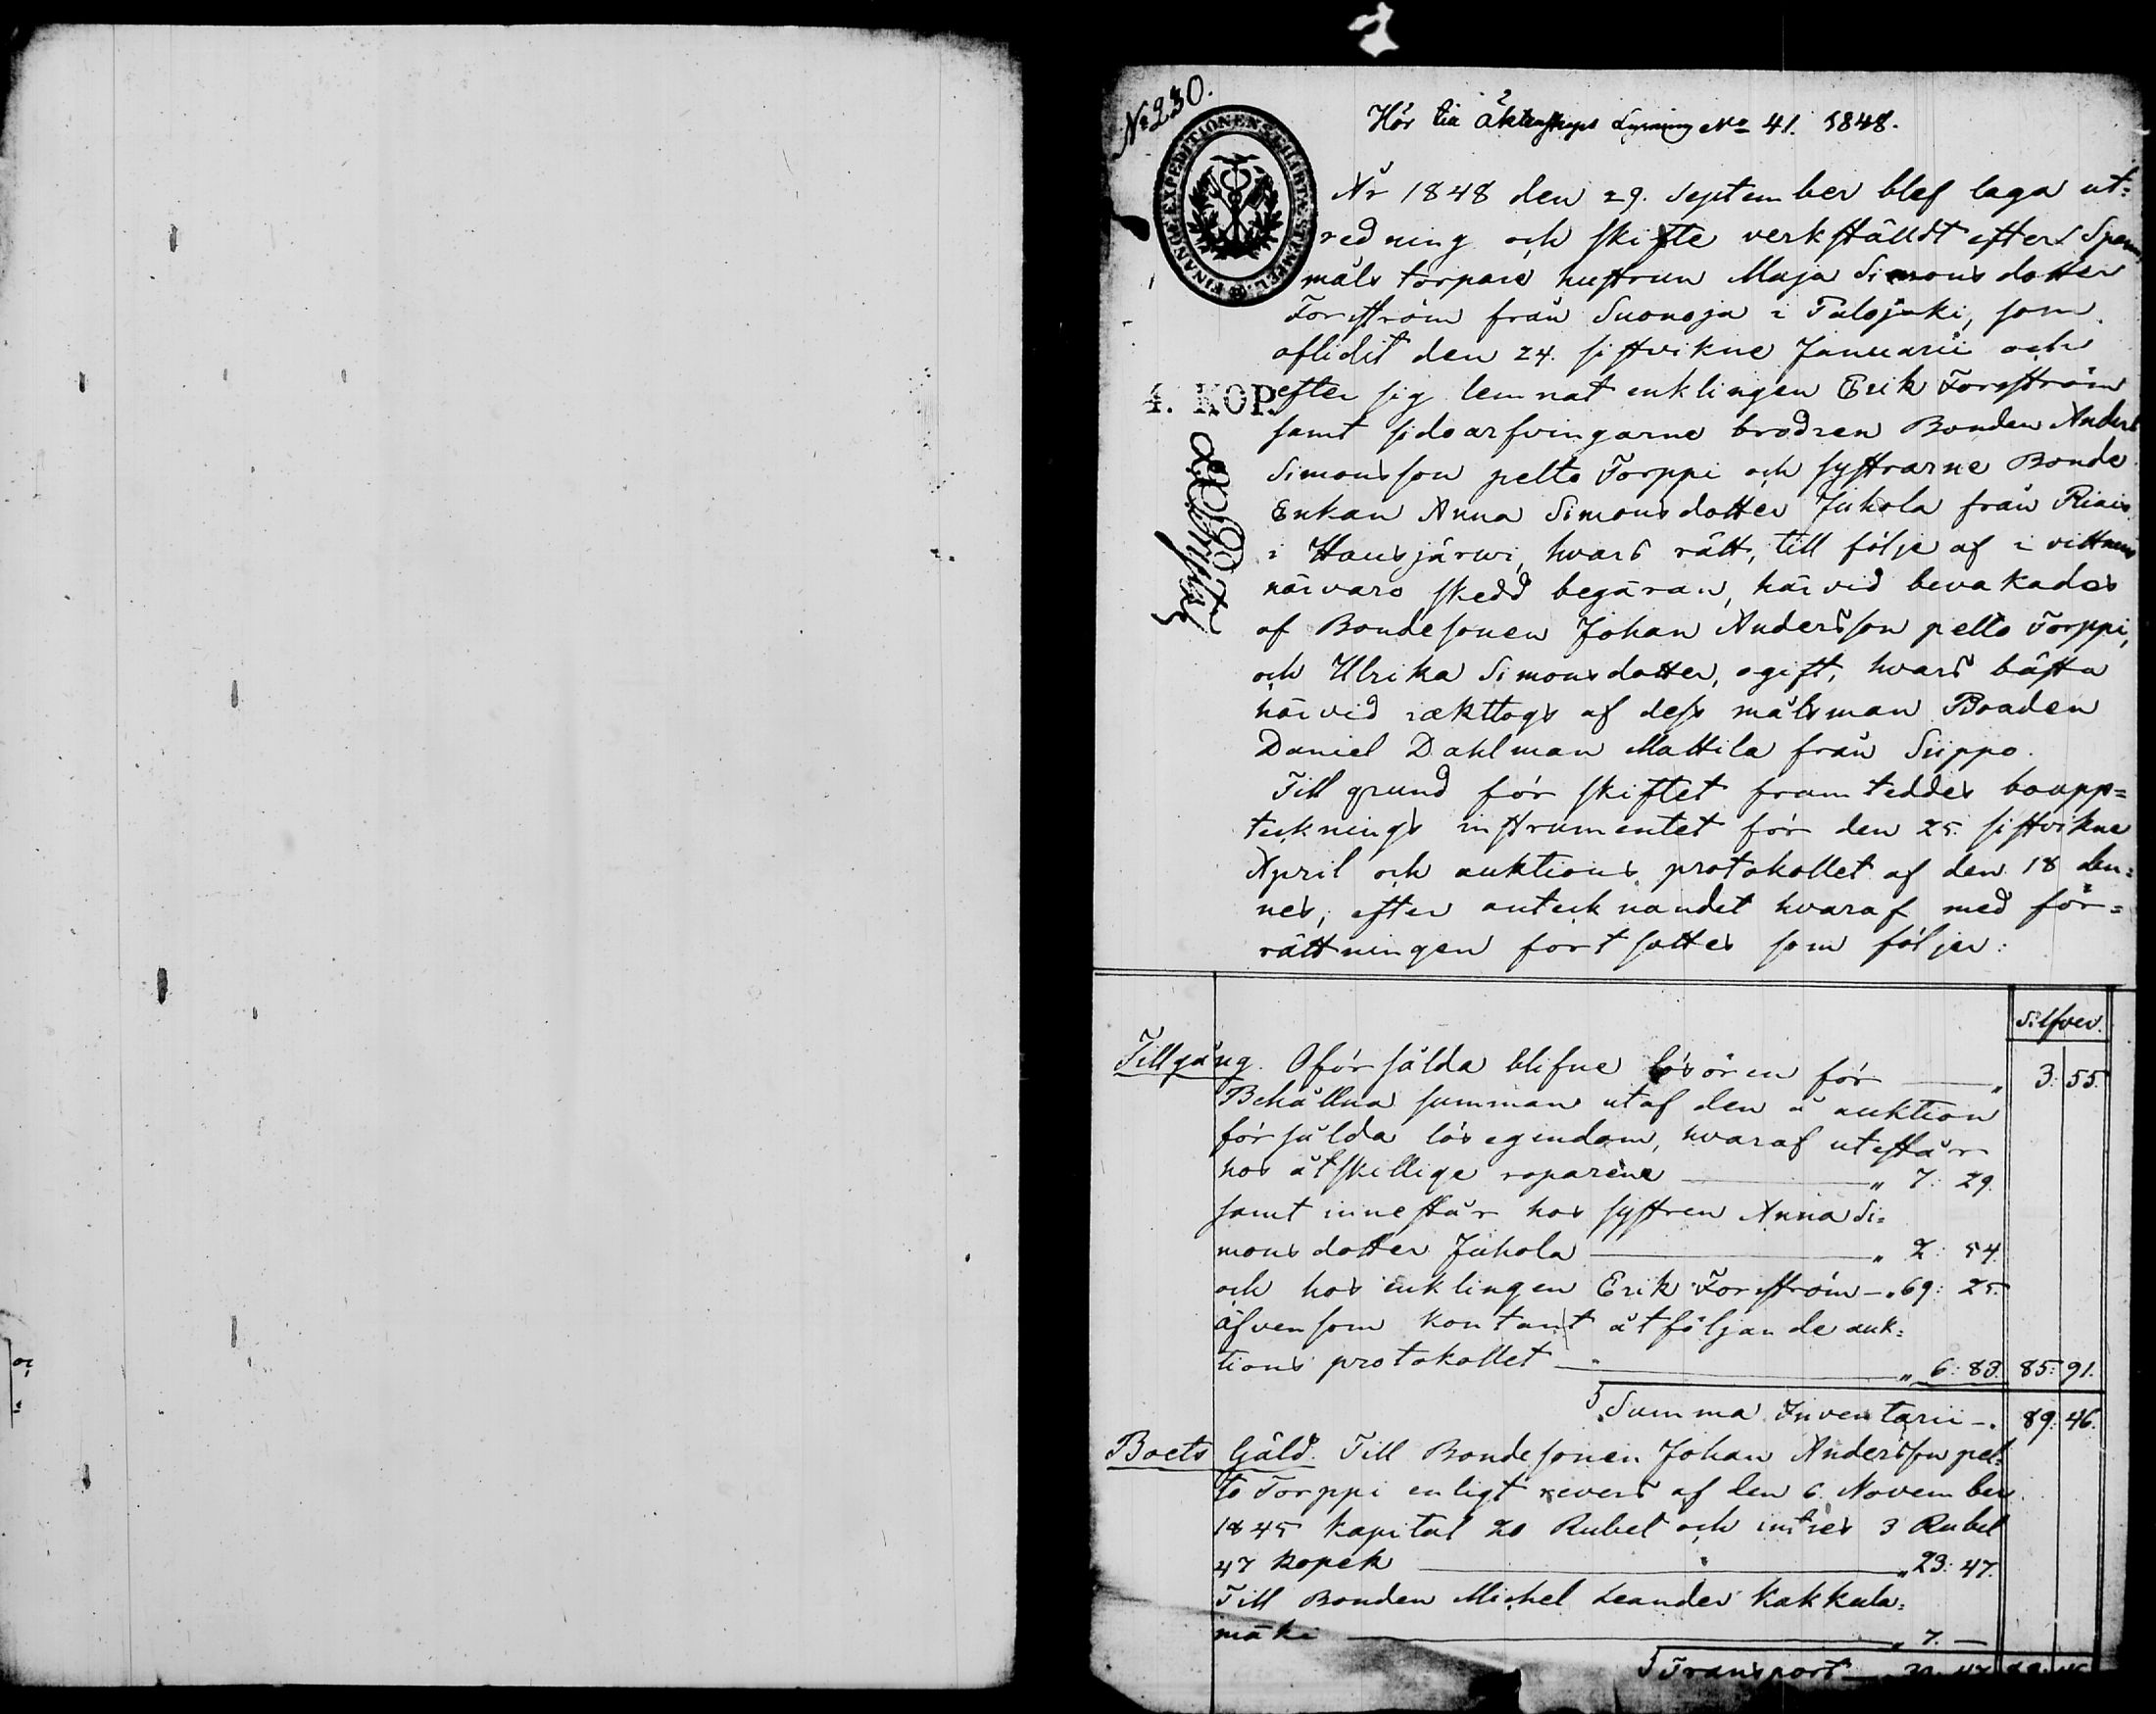 No 230.
Hör till äktenskaps Lysning No 41. 1848.
FINANCE-EXPEDITIONENS CHARTÆ STEMPEL.
År 1848 den 29. September blef laga ut=
redning och skifte verkstäldt efter Spann
måls torpare hustrun Maja Simonsdotter
Forsström från Suonoja i Talojaki, som
aflidit den 24. sistvikne Januarii och
4. KOP.
efter sig lemnat enklingen Erik Forsström
samt sidoarfvingarne brodren Bonden Anders
Simonsson pelto Torppi och systrarne Bonde
Enkan Anna Simonsdotter Juhola från Riais
i Hausjärwi, hvars rätt, till följe af i vittnens
närvaro skedd begäran, härvid bevakades
af Bondesonen Johan Andersson pelto Torppi,
och Ulrika Simonsdotter, ogift, hvars bästa
härvid iakttogs af dess målsman Bonden
Daniel Dahlman Mattila från Sippo.
Till grund för skiftet framteddes boupp=
teknings instrumentet för den 25. sistvikne
April och auktions protokollet af den 18 den=
nes, efter antecknandet hvaraf med för=
rättningen fortsattes som följer:
Silfver.
Tillgång. Oförsålda blifne lösören för " 3: 55.
Behållna summan utaf den å auktion
försålda lösegendom, hvaraf utestår
hos åtskillige roparene " 7: 29.
samt innestår hos systren Anna Si=
monsdotter Juhola " 2: 54.
och hos enklingen Erik Forsström " 69: 25.
äfvensom kontant åtföljande auk=
tions protokollet " 6: 83. 85: 91.
Summa Inventarii 89: 46.
Boets Gäld. Till Bondesonen Johan Andersson pel=
to Torppi enligt revers af den 6. November
1845 kapital 20 Rubel och intres 3 Rubel
47 kopek " 23: 47.
Till Bonden Michel Leander Kakkula=
mäki " 7. —
Transport